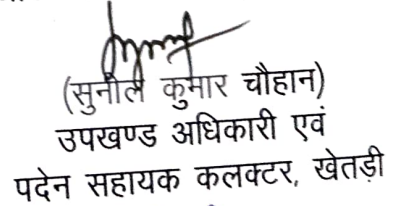 (सुनील कुमार चौहान)
उपखण्ड अधिकारी एवं
पदेन सहायक कलक्टर, खेतड़ी